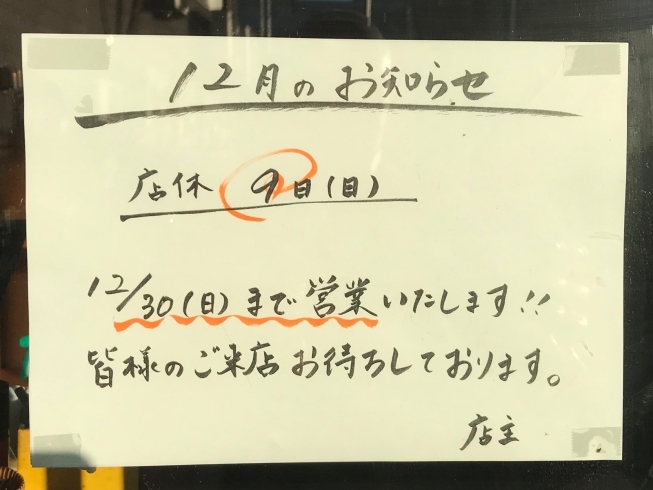 12月のお知らせ
店休 9日(日)
12/30(日)まで営業いたします!!
皆様のご来店お待ちしております。
店主